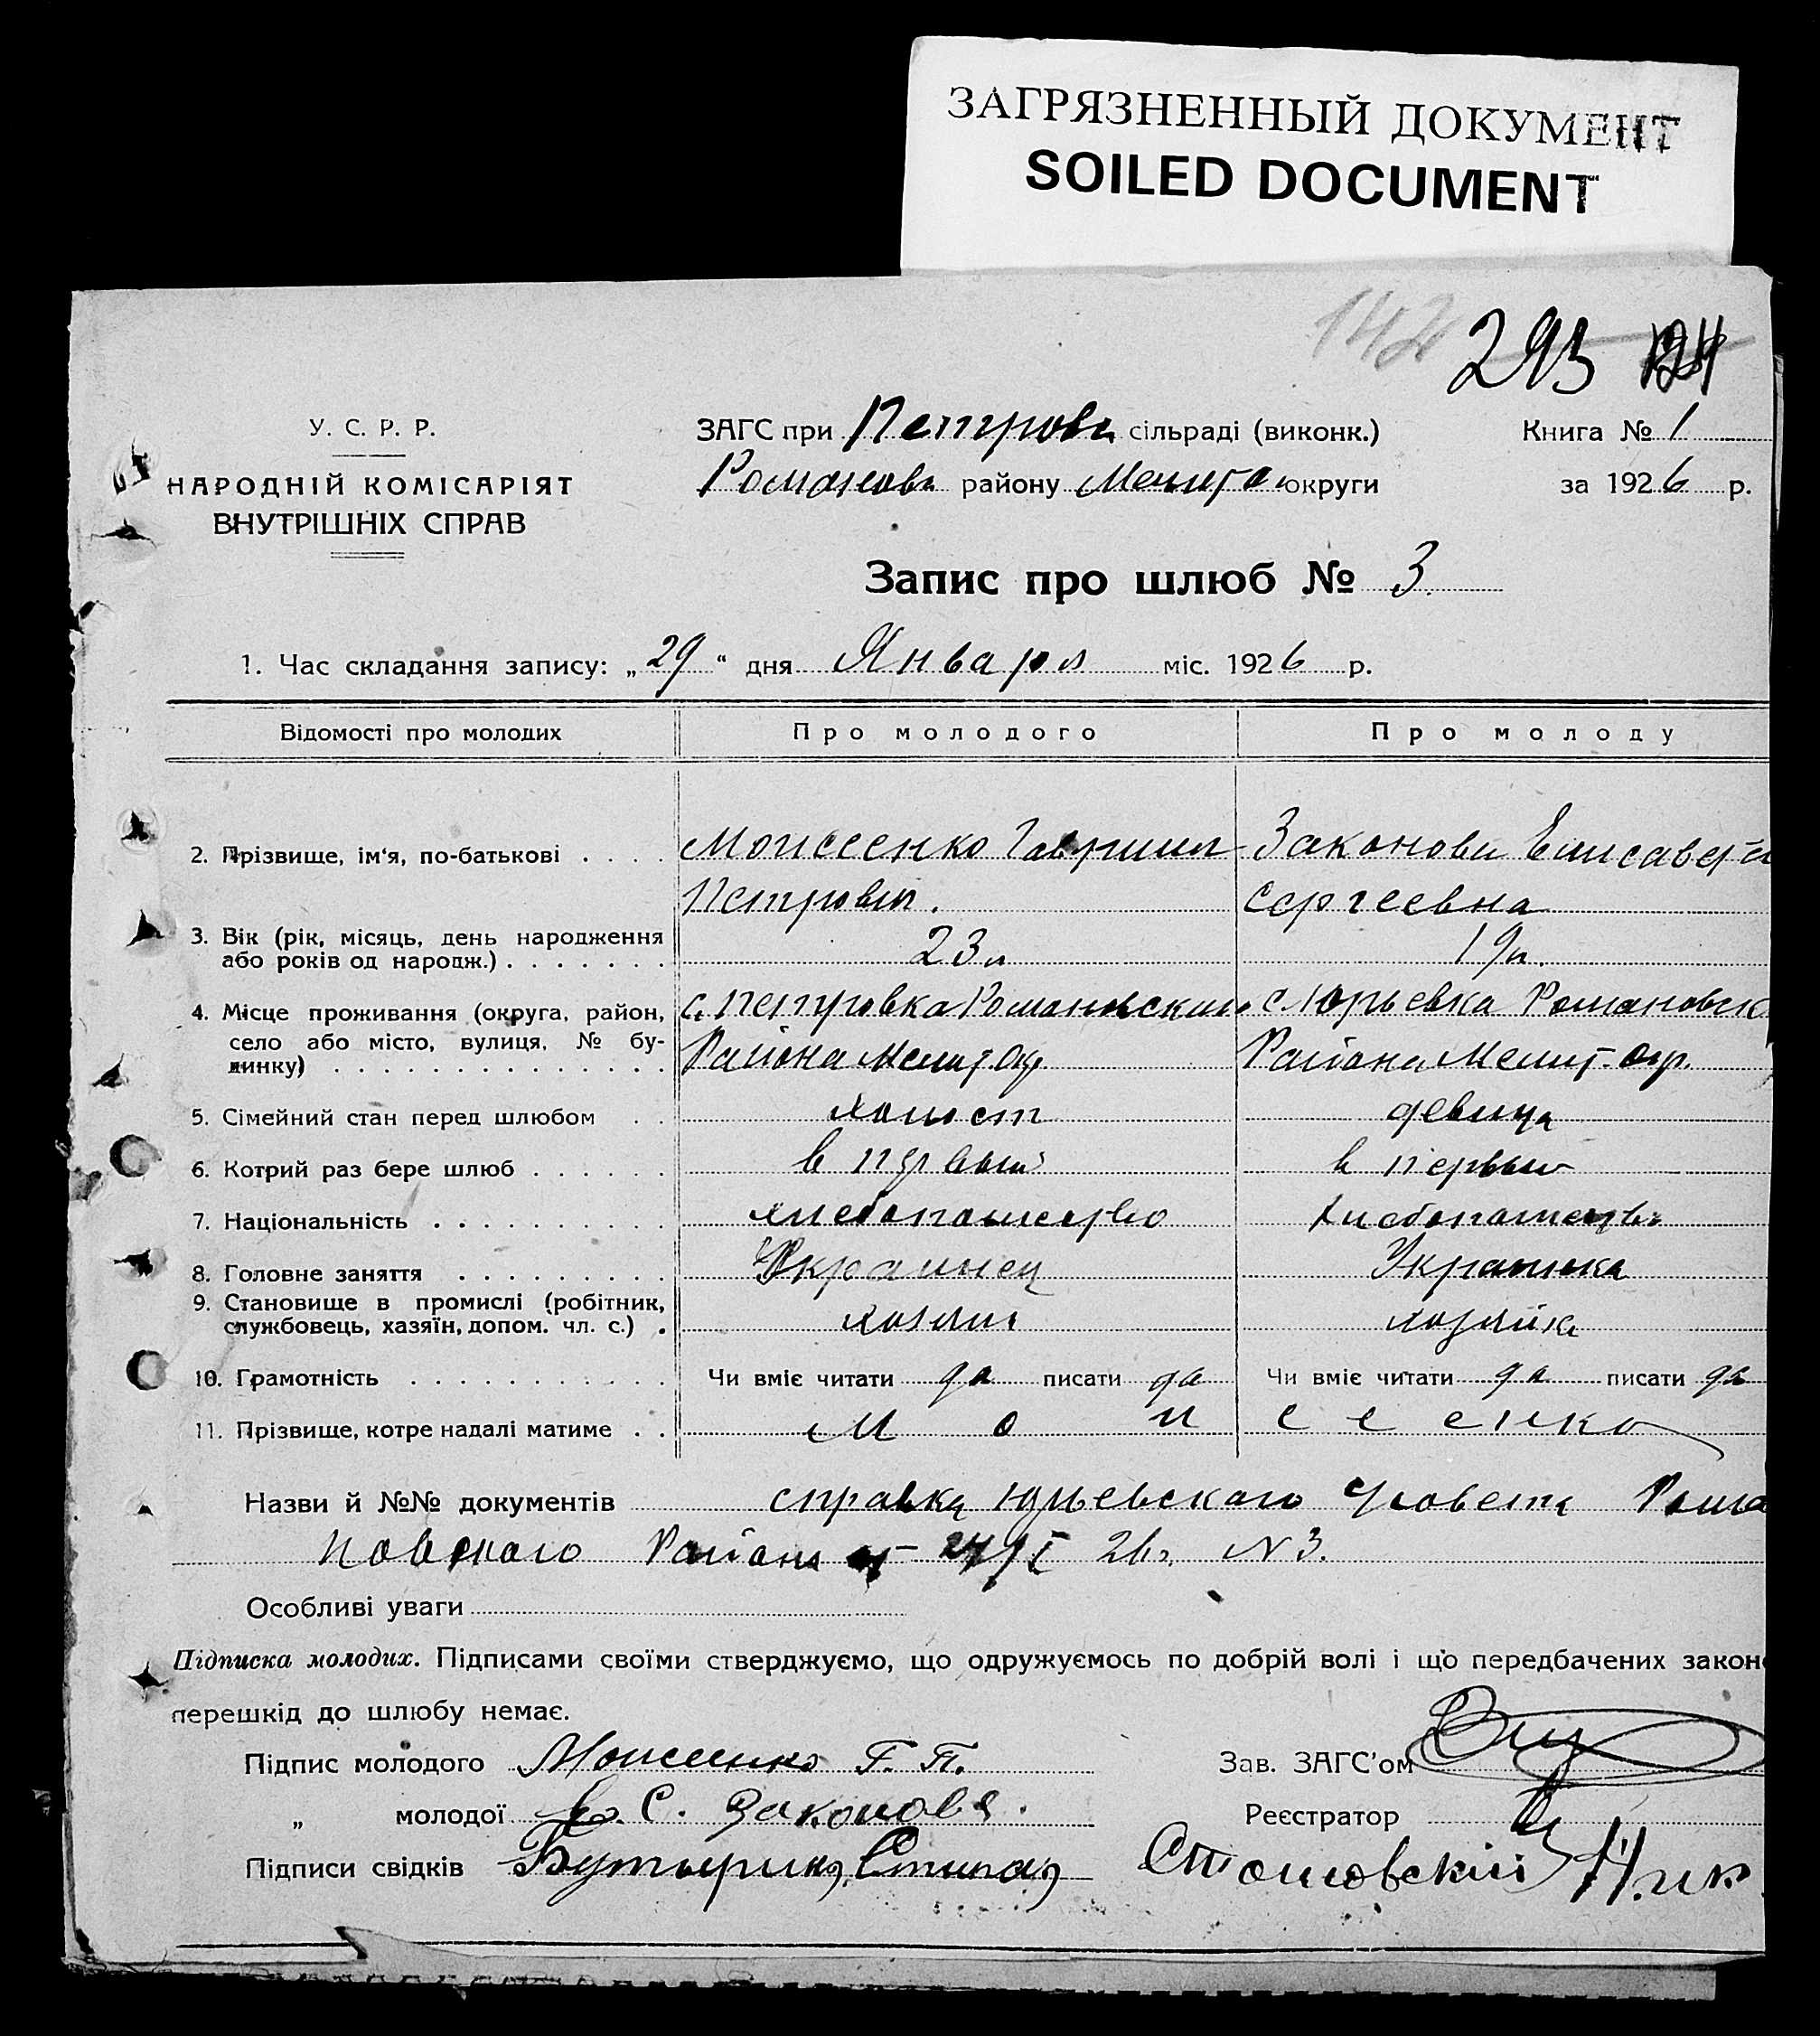 ЗАГРЯЗНЕННЫЙ ДОКУМЕНТ
SOILED DOCUMENT
142 293
У. С. Р. Р.
НАРОДНІЙ КОМІСАРІЯТ
ВНУТРІШНІХ СПРАВ
ЗАГС при Петров. сільраді (виконк.)
Романов. району Мелито округи
Книга № 1
за 1926 р.
Запис про шлюб № 3.
1. Час складання запису: „29“ дня Января міс. 1926 р.
Відомості про молодих
Про молодого
Про молоду
2. Прізвище, ім'я, по-батькові . . . .
Моисеенко Гавриил
Петрович.
Законова Елисавета
Сергеевна
3. Вік (рік, місяць, день народження
або років од народж.) . . . . . . .
23 л
19 л.
4. Місце проживання (округа, район,
село або місто, вулиця, № бу-
динку) . . . . . . . . . . . . . .
с. Петровка Романовского
Района Мелит. Окр.
с Юрьевка Романовск
Района Мелит. Окр.
5. Сімейний стан перед шлюбом . .
холост
девица
6. Котрий раз бере шлюб . . . . . .
в первый
в первый
7. Національність . . . . . . . . . .
хлебопашество
Хлебопашеств.
8. Головне заняття . . . . . . . . .
Украинец
Украинка
9. Становище в промислі (робітник,
службовець, хазяїн, допом. чл. с.) .
хозяин
хозяйка
10. Грамотність . . . . . . . . . . .
Чи вміє читати да писати да
Чи вміє читати да писати да
11. Прізвище, котре надалі матиме . .
М о и с е енко
Назви й №№ документів справка Юрьевского С/совета Рома
новского Района от 27/I 26 г. N 3.
Особливі уваги
Підписка молодих. Підписами своїми стверджуємо, що одружуємось по добрій волі і що передбачених закон
перешкід до шлюбу немає.
Підпис молодого Моисеенко Г. П.
Зав. ЗАГС'ом
„ молодої Е. С. Законова.
Реєстратор
Підписи свідків